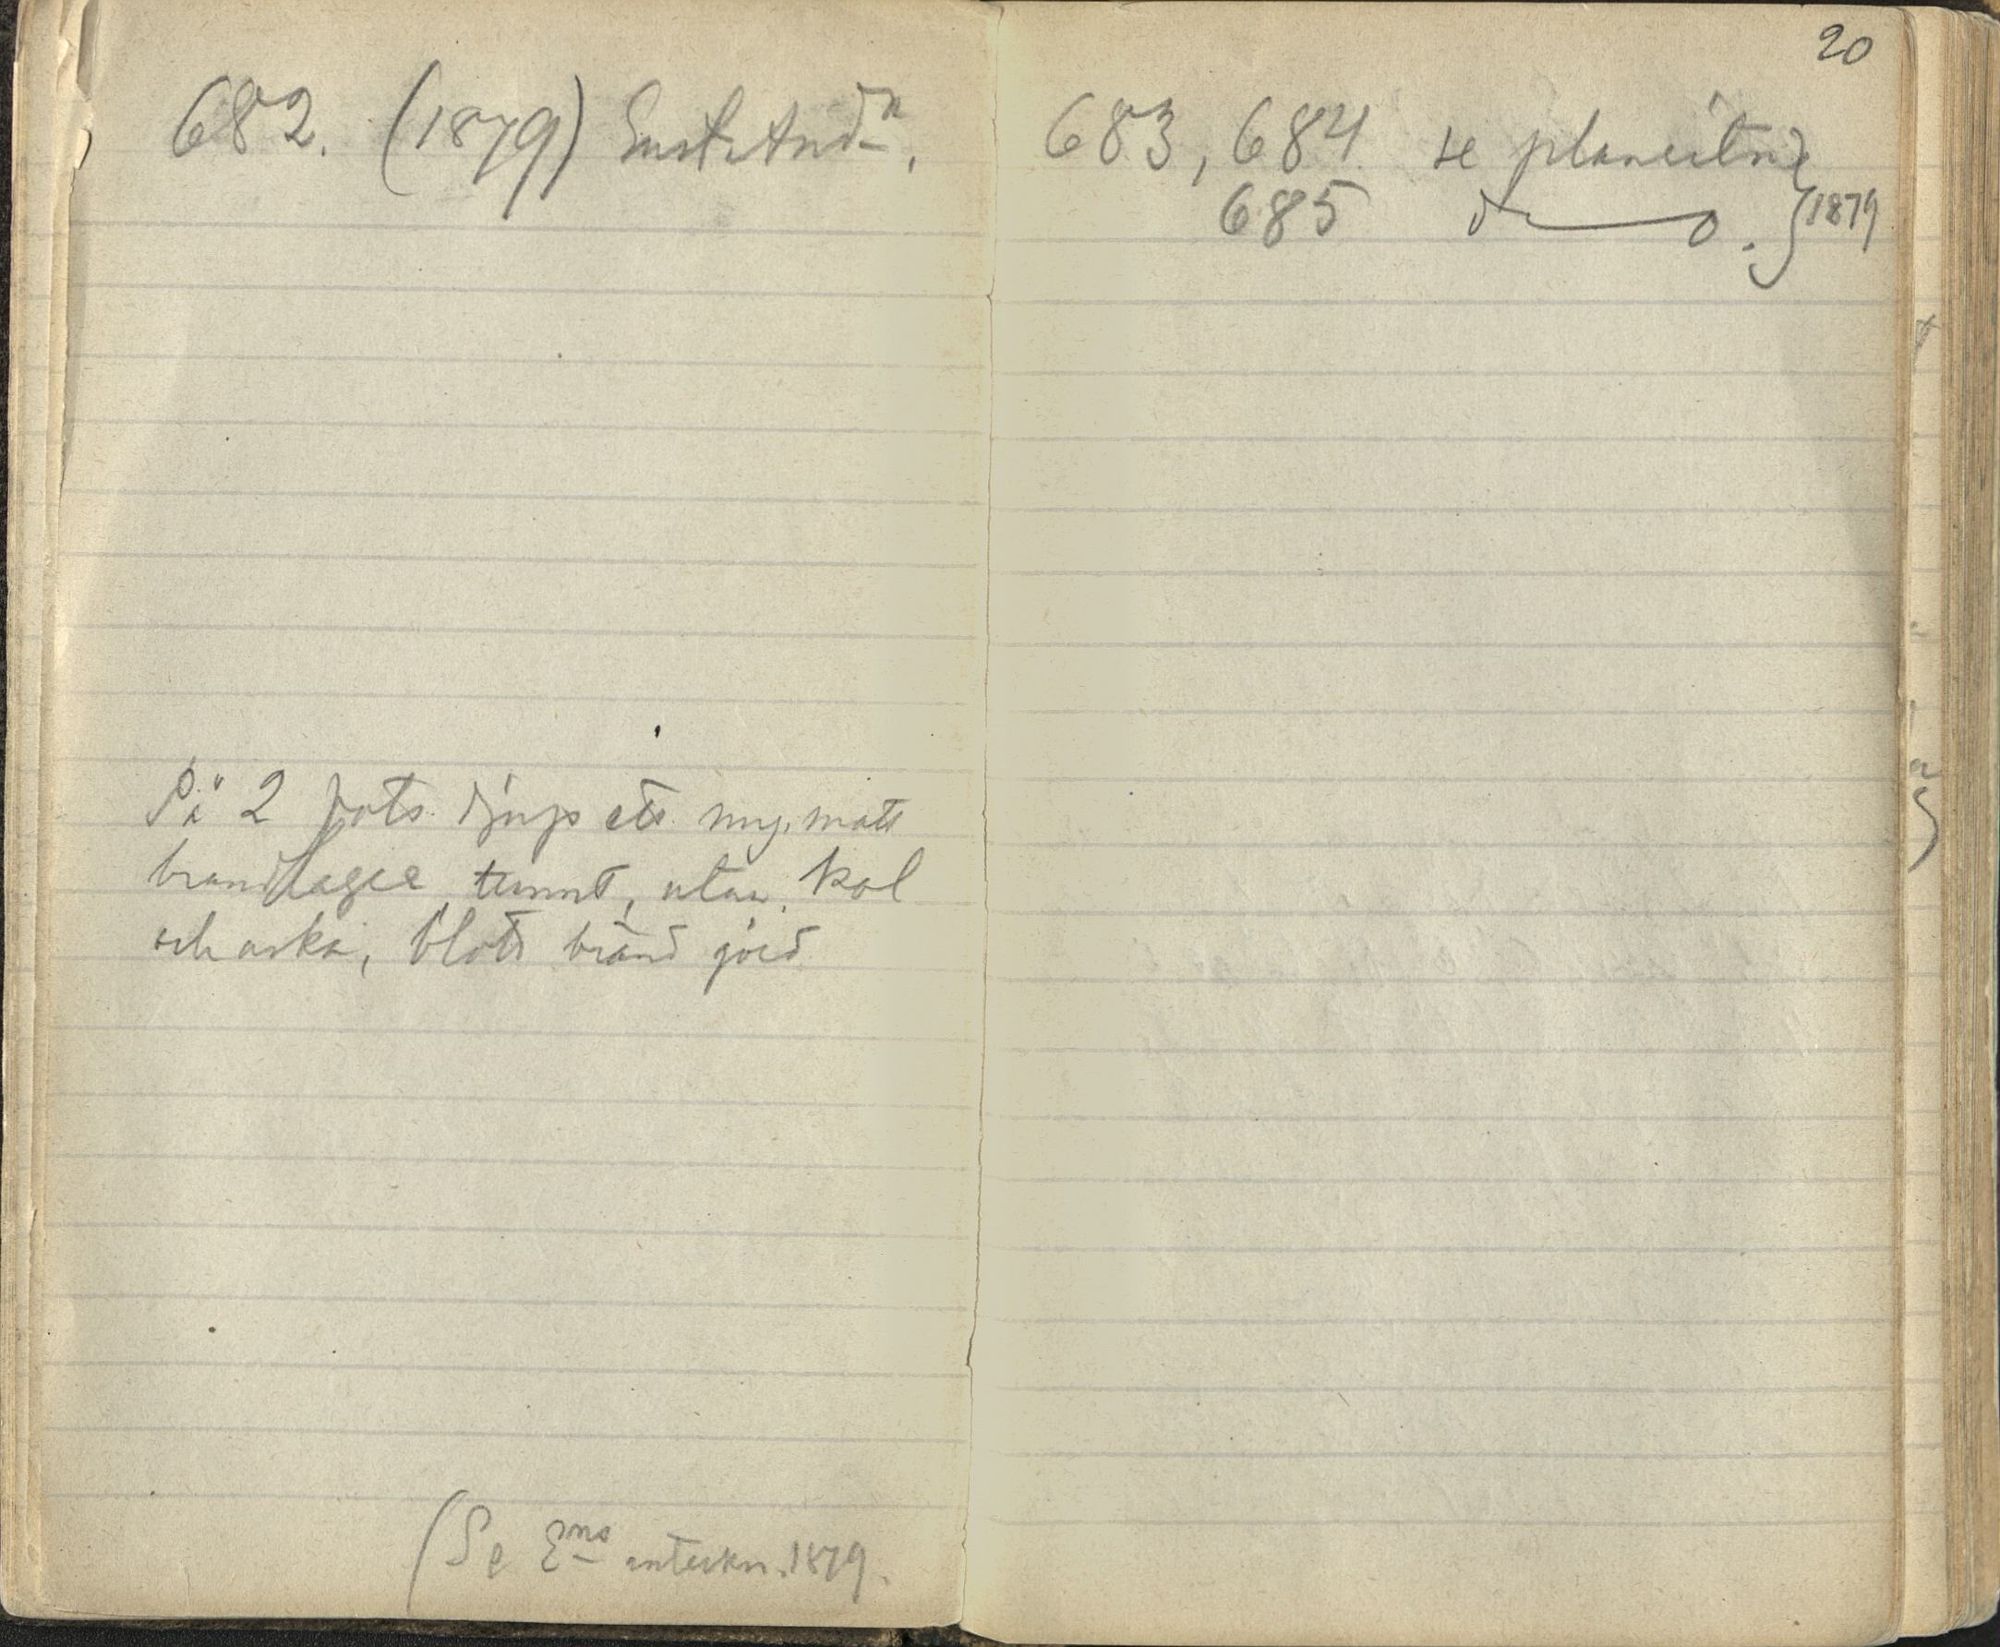 682. (1879) Gust. And:n.
På 2 fots djup ett myc. matt
brandlager tunnt, utan kol
och aska, blott bränd jord
(Se Ens anteckn. 1879.
20
683, 684 se planritn.
685 d—o. } 1879